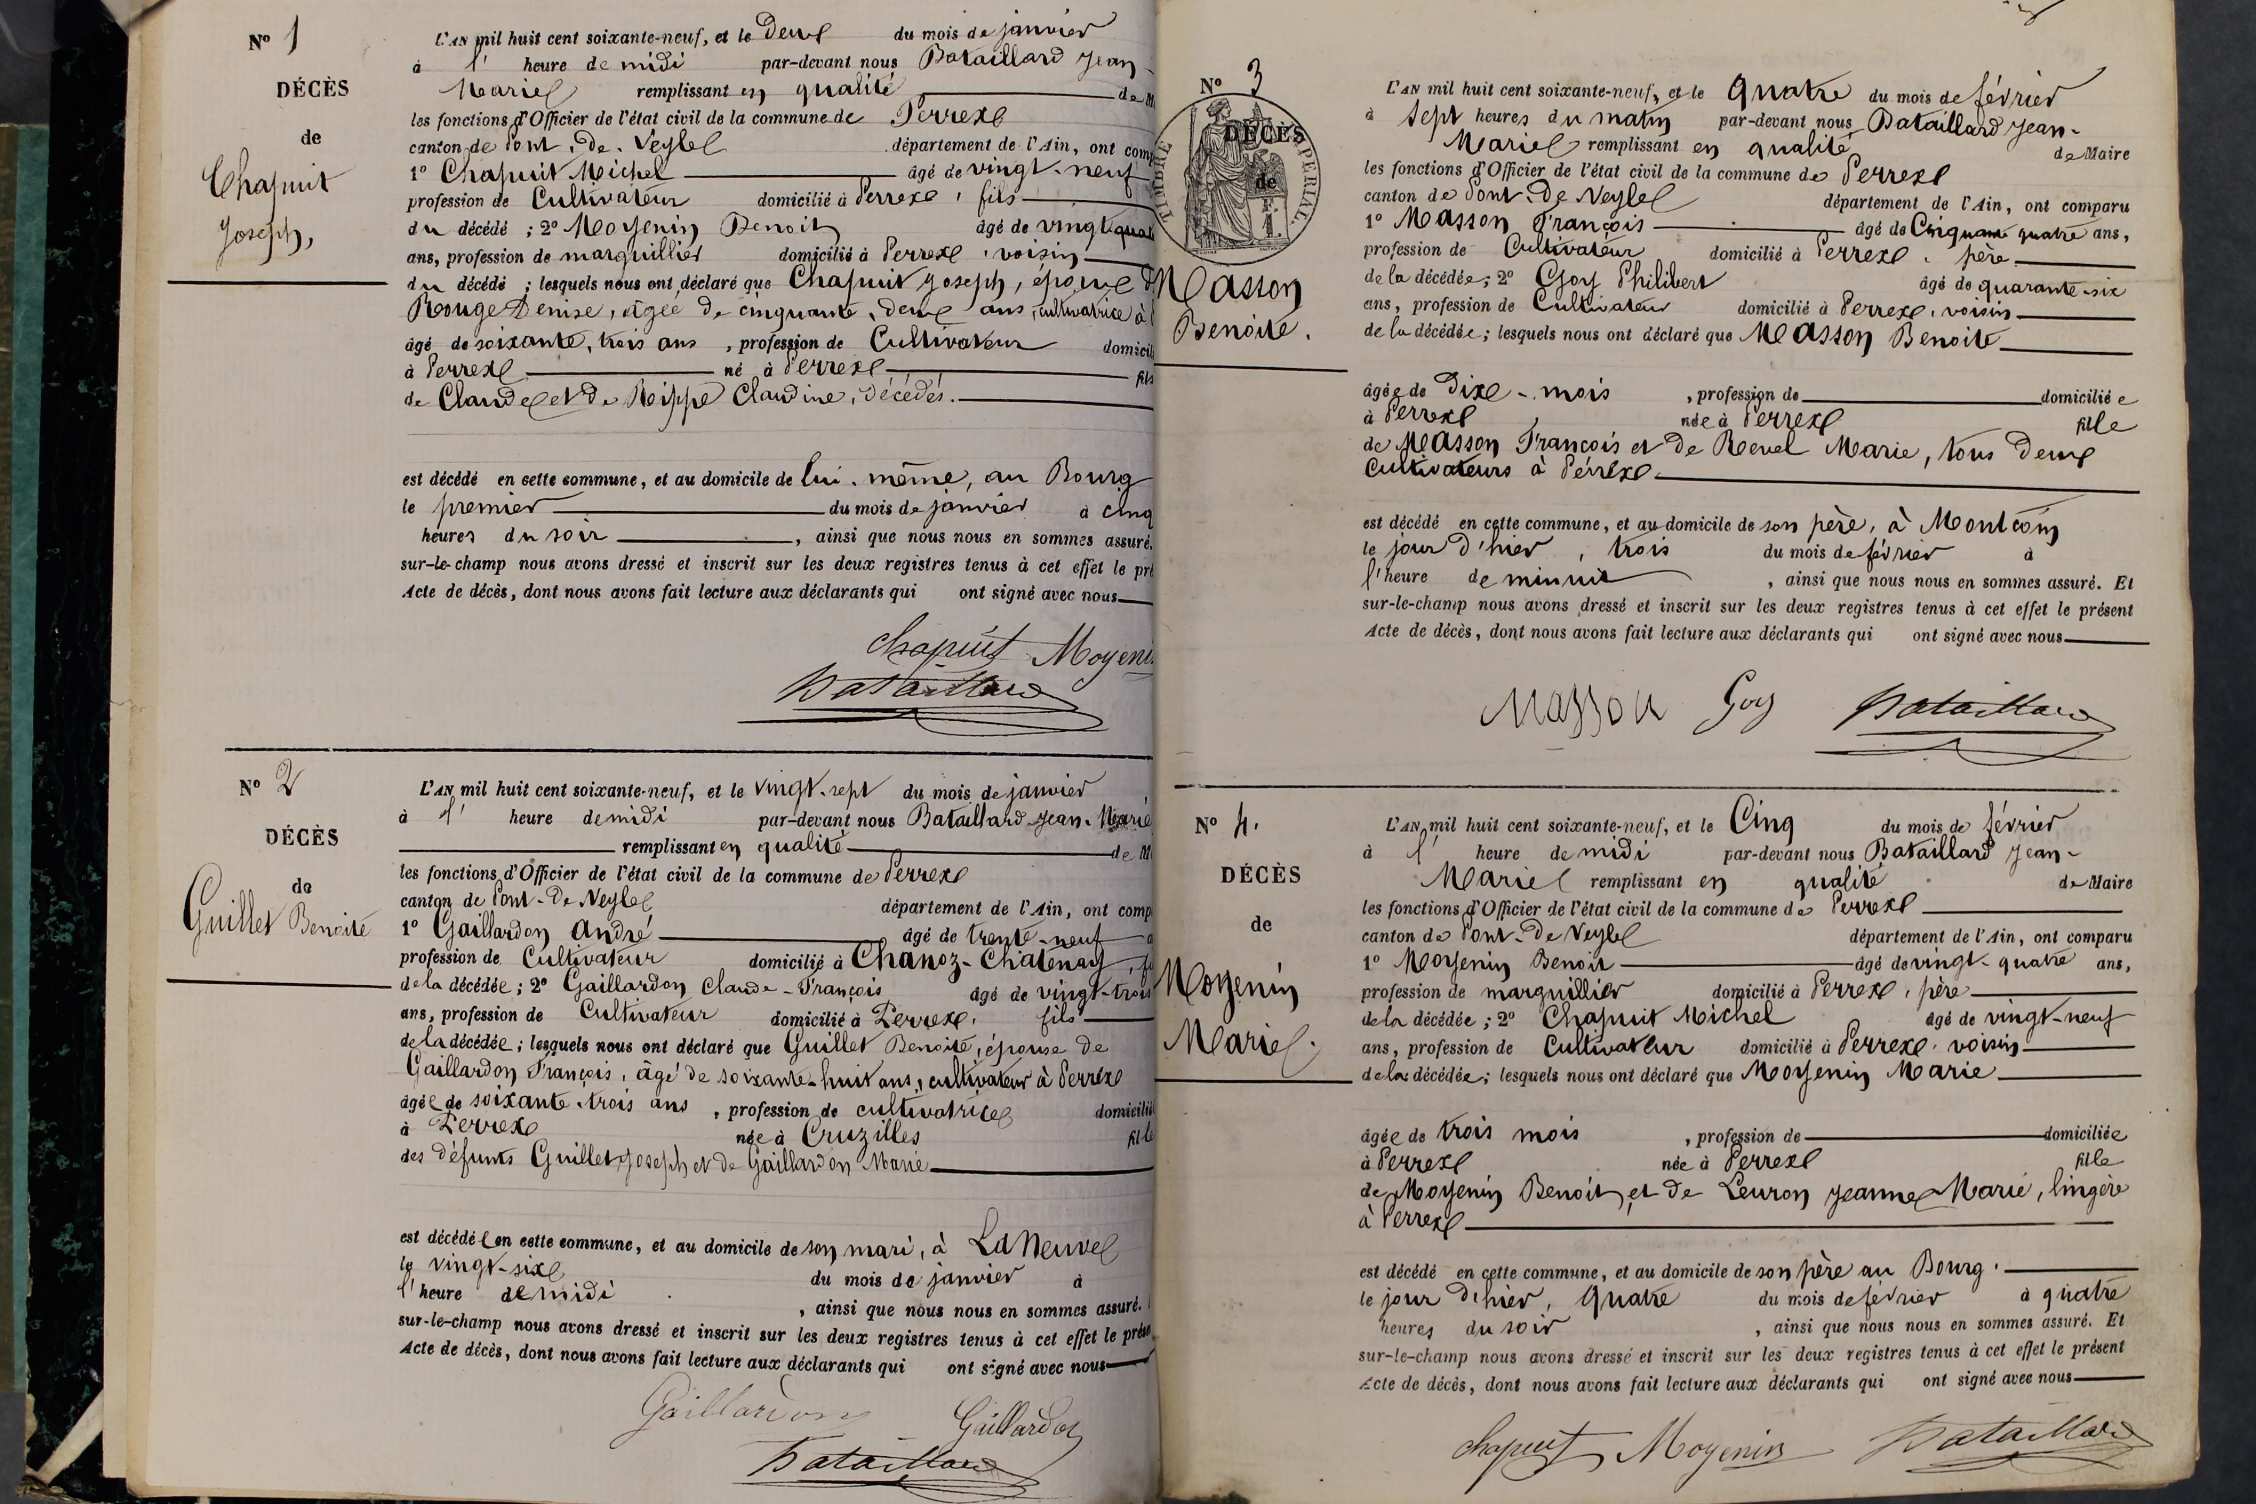 Nº 1
DÉCÈS
de
Chapuit
Joseph,
L'AN mil huit cent soixante-neuf, et le Deux du mois de janvier
à l' heure de midi par-devant nous Bataillard Jean-
Marie remplissant en qualité de M
les fonctions d'Officier de l'état civil de la commune de Perrex
canton de Pont-de-Veyle département de l'Ain, ont comp
1º Chapuit Michel âgé de vingt-neuf
profession de Cultivateur domicilié à Perrex, fils
du décédé ; 2º Moyenin Benoit âgé de vingt quat
ans, profession de marguillier domicilié à Perrex, voisin
du décédé ; lesquels nous ont déclaré que Chapuit Joseph, époux d
Rouge Denise, âgée de cinquante-deux ans, cultivatrice à
âgé de soixante-trois ans, profession de Cultivateur domicil
à Perrex né à Perrex fils
de Claude et de Rippe Claudine, décédés.
est décédé en cette commune, et au domicile de lui-même, au Bourg
le premier du mois de janvier à cinq
heures du soir, ainsi que nous nous en sommes assuré.
sur-le-champ nous avons dressé et inscrit sur les deux registres tenus à cet effet le pré
Acte de décès, dont nous avons fait lecture aux déclarants qui ont signé avec nous
Chapuit Moyeni
Bataillard
Nº 2
DÉCÈS
de
Guillet Benoite
L'AN mil huit cent soixante-neuf, et le vingt-sept du mois de janvier
à l' heure de midi par-devant nous Bataillard Jean-Marie
remplissant en qualité de M
les fonctions d'Officier de l'état civil de la commune de Perrex
canton de Pont-de-Veyle département de l'Ain, ont comp
1º Gaillardon André âgé de trente-neuf a
profession de Cultivateur domicilié à Chanoz-Châtenay, fi
de la décédée ; 2º Gaillardon Claude-François âgé de vingt-trois
ans, profession de Cultivateur domicilié à Perrex, fils
de la décédée ; lesquels nous ont déclaré que Guillet Benoite, épouse de
Gaillardon François, âgé de soixante-huit ans, cultivateur à Perrex
âgée de soixante-trois ans, profession de cultivatrice domicilié
à Perrex née à Cruzilles fille
des défunts Guillet Joseph et de Gaillardon Marie
est décédée en cette commune, et au domicile de son mari, à La Neuve
le vingt-six du mois de janvier à
l'heure de midi, ainsi que nous nous en sommes assuré.
sur-le-champ nous avons dressé et inscrit sur les deux registres tenus à cet effet le prése
Acte de décès, dont nous avons fait lecture aux déclarants qui ont signé avec nous
Gaillardon Gaillardon
Bataillard
Nº 3
TIMBRE IMPÉRIAL
DÉCÈS
de
Masson
Benoite.
L'AN mil huit cent soixante-neuf, et le Quatre du mois de février
à Sept heures du matin par-devant nous Bataillard Jean-
Marie remplissant en qualité de Maire
les fonctions d'Officier de l'état civil de la commune de Perrex
canton de Pont-de-Veyle département de l'Ain, ont comparu
1º Masson François âgé de Cinquante quatre ans,
profession de Cultivateur domicilié à Perrex, père
de la décédée ; 2º Goy Philibert âgé de quarante-six
ans, profession de Cultivateur domicilié à Perrex, voisin
de la décédée ; lesquels nous ont déclaré que Masson Benoite
âgée de Dix-mois, profession de domiciliée
à Perrex née à Perrex fille
de Masson François et de Revel Marie, tous deux
Cultivateurs à Perrex
est décédé en cette commune, et au domicile de son père, à Montcoin
le jour d'hier, trois du mois de février à
l'heure de minuit, ainsi que nous nous en sommes assuré. Et
sur-le-champ nous avons dressé et inscrit sur les deux registres tenus à cet effet le présent
Acte de décès, dont nous avons fait lecture aux déclarants qui ont signé avec nous
Masson Goy Bataillard
Nº 4.
DÉCÈS
de
Moyenin
Marie.
L'AN mil huit cent soixante-neuf, et le Cinq du mois de février
à l' heure de midi par-devant nous Bataillard Jean-
Marie remplissant en qualité de Maire
les fonctions d'Officier de l'état civil de la commune de Perrex
canton de Pont-de-Veyle département de l'Ain, ont comparu
1º Moyenin Benoit âgé de vingt-quatre ans,
profession de marguillier domicilié à Perrex, père
de la décédée ; 2º Chapuit Michel âgé de vingt-neuf
ans, profession de Cultivateur domicilié à Perrex, voisin
de la décédée ; lesquels nous ont déclaré que Moyenin Marie
âgée de trois mois, profession de domiciliée
à Perrex née à Perrex fille
de Moyenin Benoit, et de Leuron Jeanne Marie, lingère
à Perrex
est décédé en cette commune, et au domicile de son père au Bourg.
le jour d'hier, Quatre du mois de février à quatre
heures du soir, ainsi que nous nous en sommes assuré. Et
sur-le-champ nous avons dressé et inscrit sur les deux registres tenus à cet effet le présent
Acte de décès, dont nous avons fait lecture aux déclarants qui ont signé avec nous
Chapuit Moyenin Bataillard